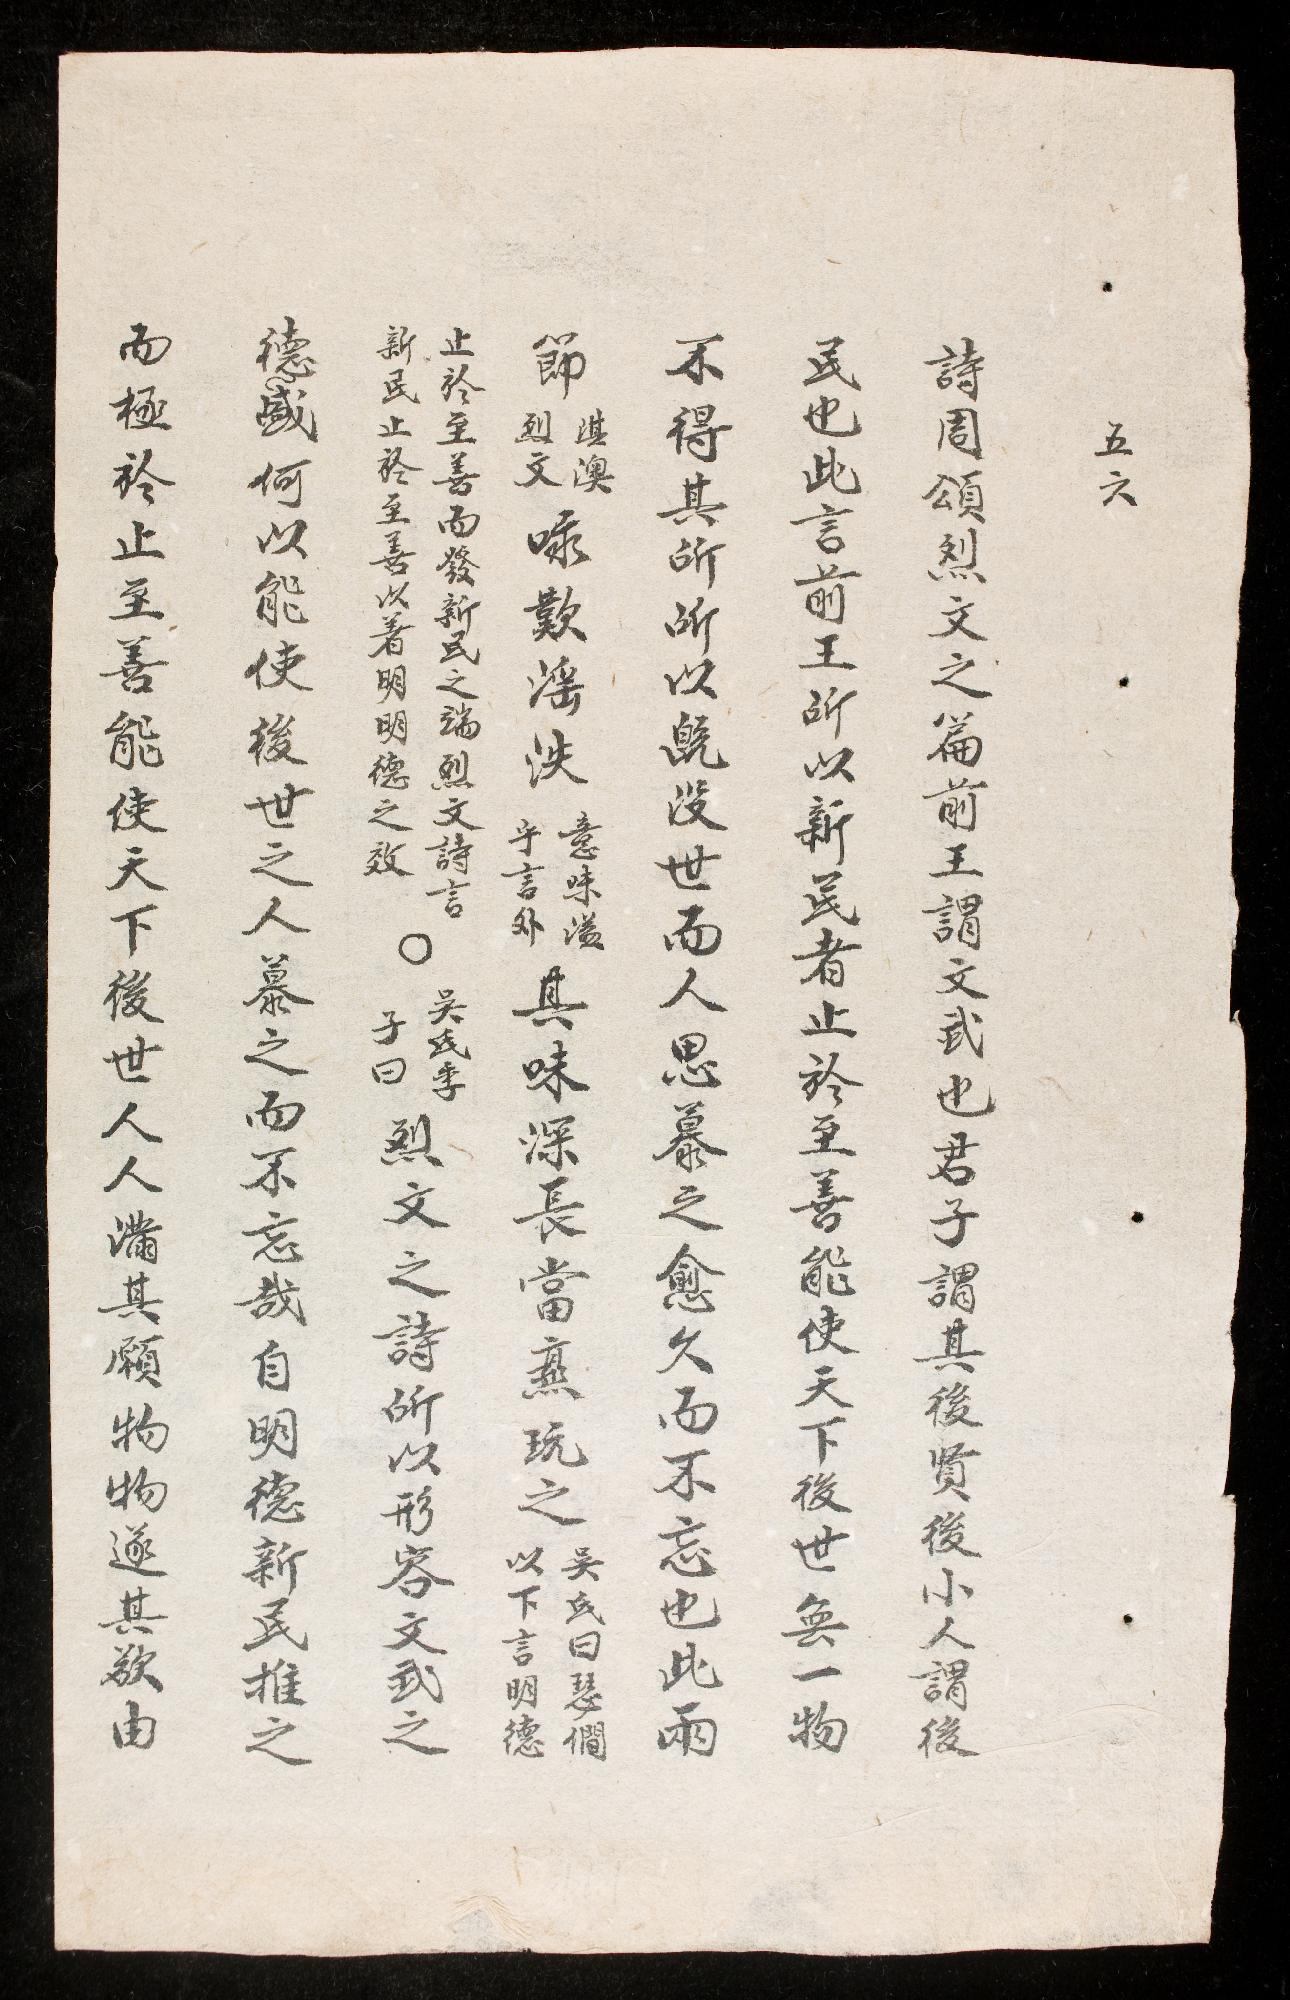 五六
詩周頌烈文之篇前王謂文武也君子謂其後賢後小人謂後
民也此言前王所以新民者止於至善能使天下後世無一物
不得其所所以旣沒世而人思慕之愈久而不忘也此兩
節
淇澳
烈文
咏歎滛泆
意味溢
乎言外
其味深長當熹玩之
吳氏曰瑟僩
以下言明德
止於至善而發新民之端烈文詩言
新民止於至善以著明明德之效
○
吳氏季
子曰
烈文之詩所以形容文武之
德盛何以能使後世之人慕之而不忘哉自明德新民推之
而極於止至善能使天下後世人人滿其願物物遂其欲由